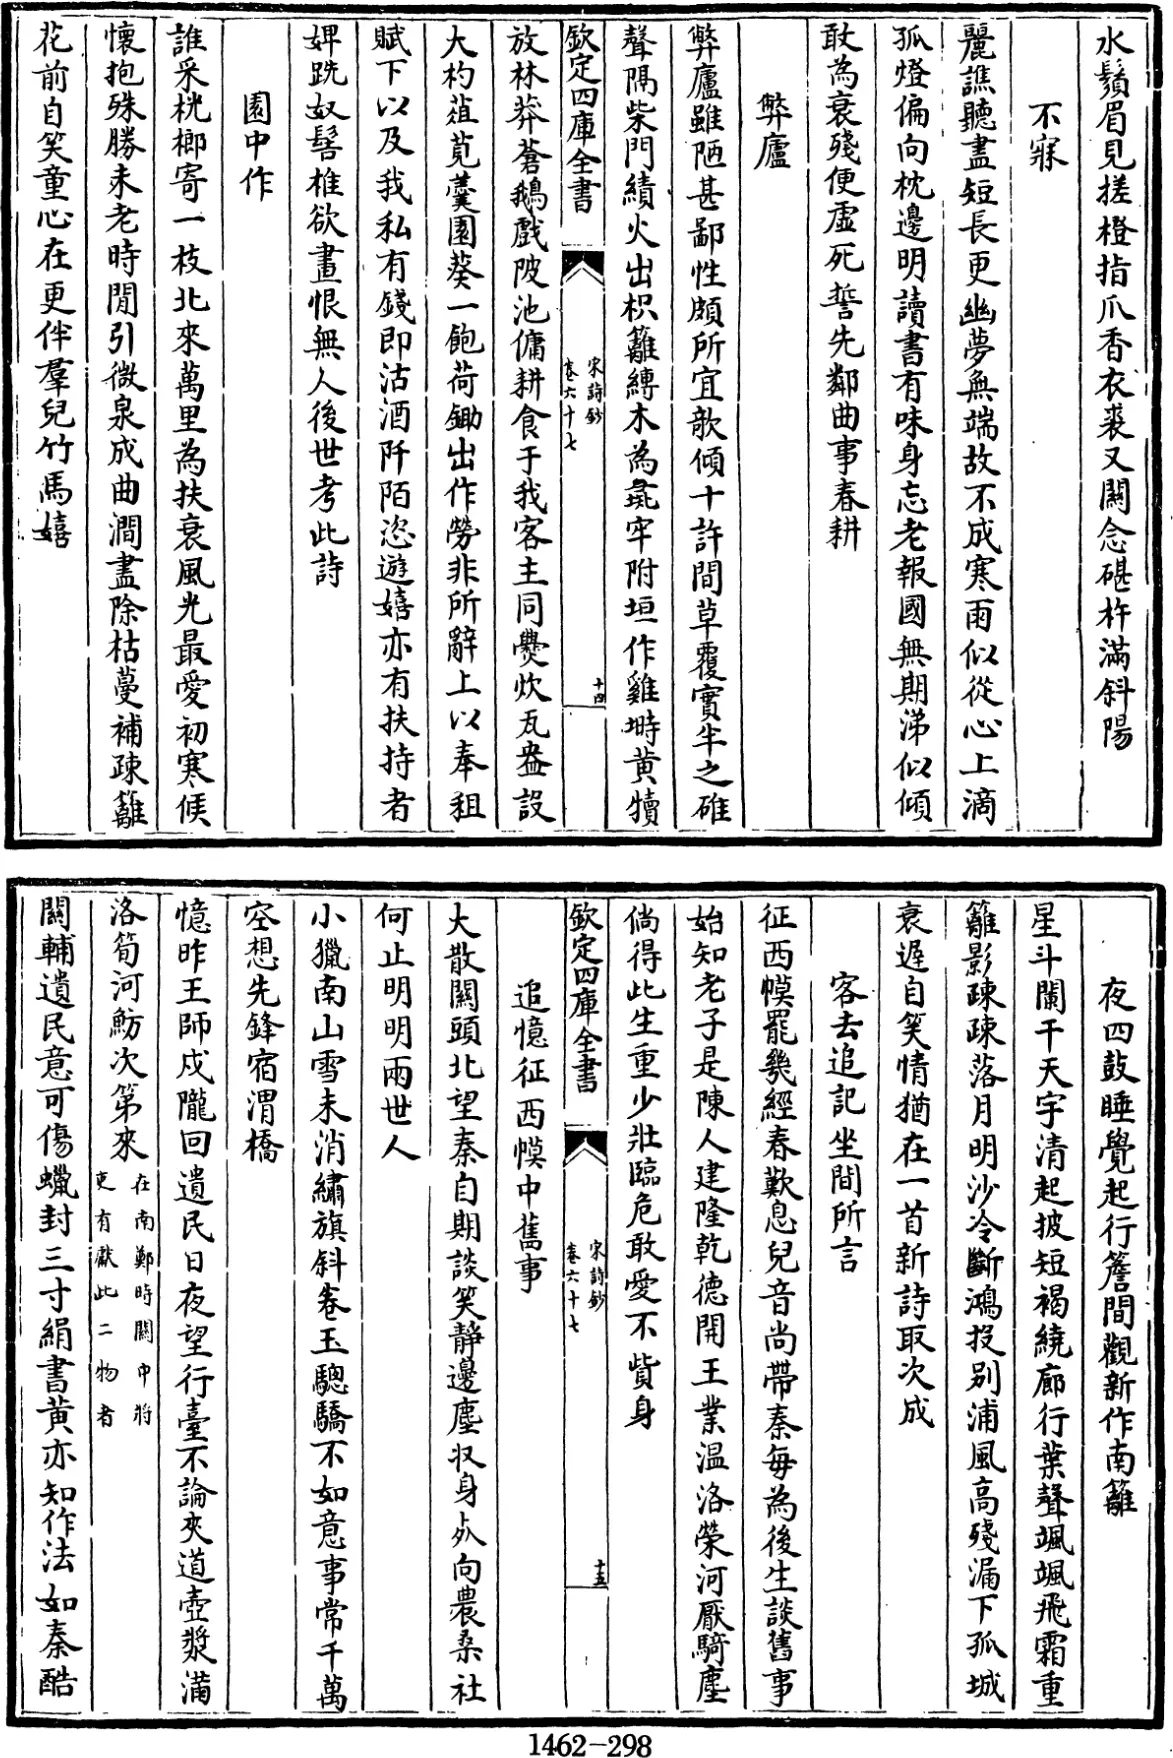 水鬚眉見搓橙指爪香衣裘又關念碪杵滿斜陽
不寐
麗譙聽盡短長更幽夢無端故不成寒雨似從心上滴
孤燈偏向枕邊明讀書有味身忘老報國無期涕似傾
敢為衰殘便虛死誓先鄰曲事春耕
弊廬
弊廬雖陋甚鄙性頗所宜歌傾十許間草覆實半之碓
聲隔柴門績火出枳籬縳木為彘牢附垣作雞塒黄犢
欽定四庫全書
宋詩鈔
卷六十七
十四
放林莽蒼鵝戲陂池傭耕食于我客主同㸑炊瓦盎設
大杓葅莧羹園葵一飽荷鋤出作勞非所辭上以奉租
賦下以及我私有錢即沽酒阡陌恣遊嬉亦有扶持者
婢跣奴髻椎欲畫恨無人後世考此詩
園中作
誰采桄榔寄一枝北來萬里為扶衰風光最愛初寒候
懷抱殊勝未老時閒引微泉成曲澗盡除枯蔓補疎籬
花前自笑童心在更伴羣兒竹馬嬉
夜四鼓睡覺起行簷間觀新作南籬
星斗闌干天宇清起披短褐繞廊行葉聲颯颯飛霜重
籬影疎疎落月明沙冷斷鴻投别浦風高殘漏下孤城
衰遲自笑情猶在一首新詩取次成
客去追記坐間所言
征西幙罷幾經春歎息兒音尚帶秦每為後生談舊事
始知老子是陳人建隆乾德開王業温洛榮河厭騎塵
倘得此生重少壯臨危敢愛不貲身
欽定四庫全書
宋詩鈔
卷六十七
十五
追憶征西幙中舊事
大散關頭北望秦自期談笑靜邊塵収身䠶向農桑社
何止明明兩世人
小獵南山雪未消繡旗斜卷玉驄驕不如意事常千萬
空想先鋒宿渭橋
憶昨王師戍隴回遺民日夜望行臺不論夾道壺漿滿
洛筍河魴次第來
在南鄭時關中將
吏有獻此二物者
關輔遺民意可傷蠟封三寸絹書黄亦知作法如秦酷
1462-298